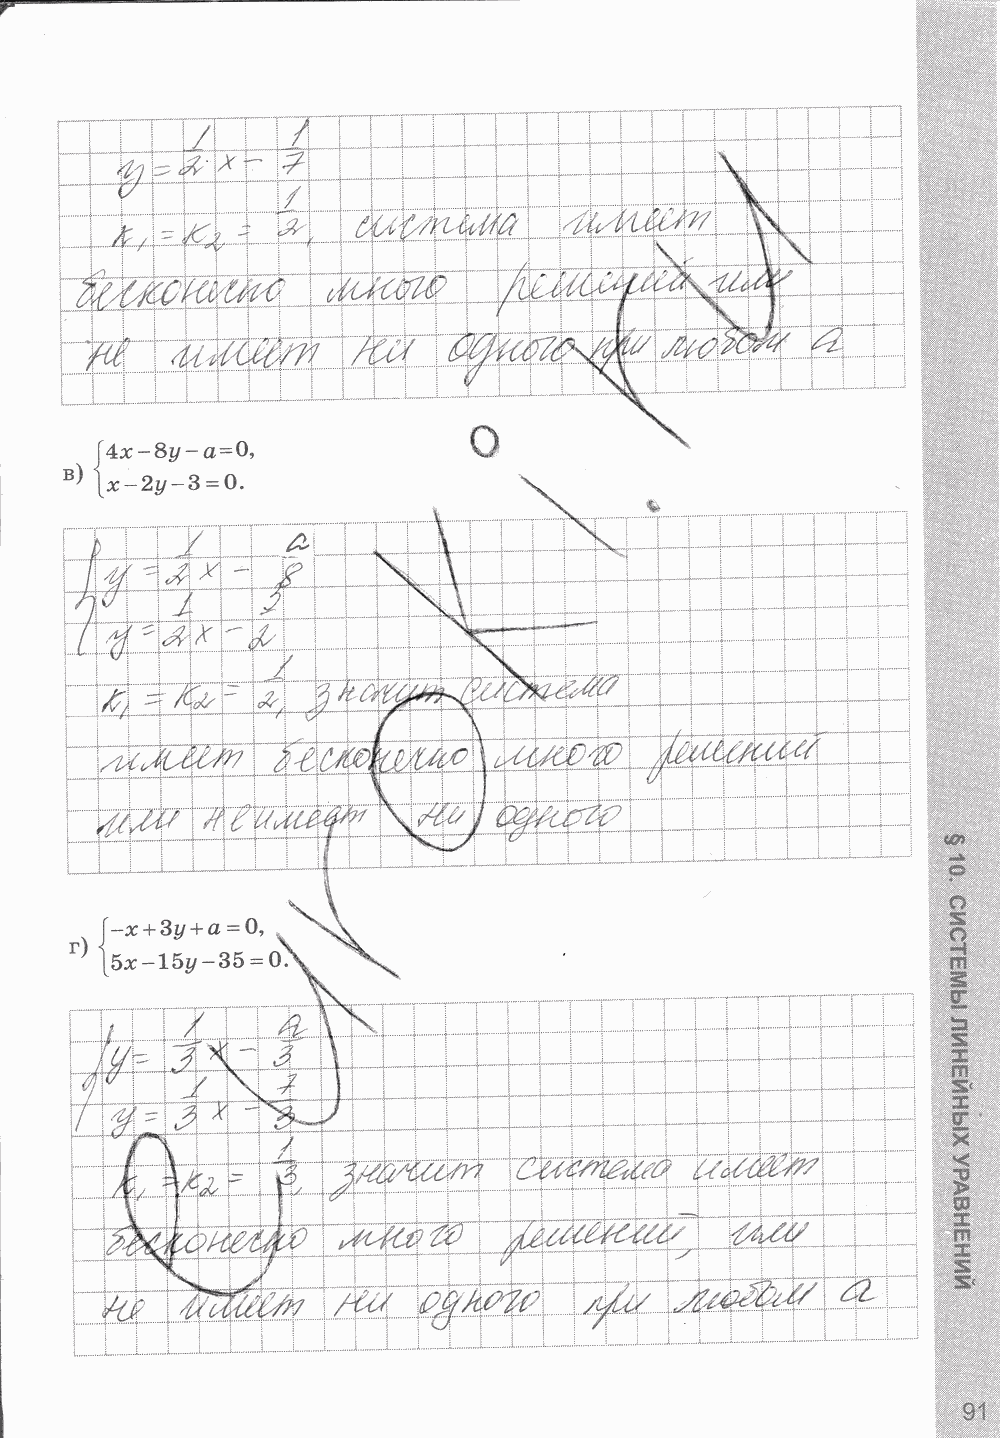 y = 1/2 x - 1/7
к₁ = к₂ = 1/2, система имеет
бесконечно много решений или
не имеет ни одного при любом а
в) { 4x - 8y - a = 0,
x - 2y - 3 = 0.
{ y = 1/2 x - a/8
y = 1/2 x - 3/2
к₁ = к₂ = 1/2, значит система
имеет бесконечно много решений
или не имеет ни одного
г) { -x + 3y + a = 0,
5x - 15y - 35 = 0.
{ y = 1/3 x - a/3
y = 1/3 x - 7/3
к₁ = к₂ = 1/3, значит система имеет
бесконечно много решений, или
не имеет ни одного при любом а
§ 10. СИСТЕМЫ ЛИНЕЙНЫХ УРАВНЕНИЙ
91